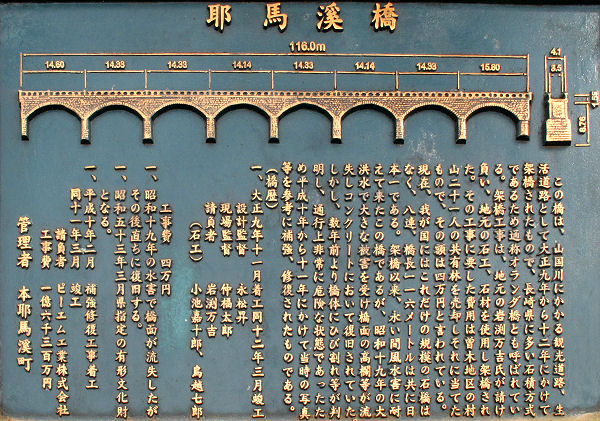 耶馬溪橋
116.0m
14.60 14.33 14.33 14.14 14.33 14.14 14.33 15.80
4.1
3.5
この橋は、山国川にかかる観光道路、生
活道路として、大正九年から十二年にかけて
架橋されたもので、長崎県に多い石積方式
であるため通称オランダ橋とも呼ばれてい
る。架橋工事は、地元の岩渕万吉氏が請け
負い、地元の石工、石材を使用し架橋され
た。その工事に要した費用は曽木地区の村
山二十一人の共有林を売却しそれに当てた
もので、その額は四万円と言われている。
現在、我が国にはこれだけの規模の石橋は
なく、八連、橋長一一六メートルは共に日
本一である。架橋以来、永い間風水害に耐
えて来たこの橋であるが、昭和十九年の大
洪水で大きな被害を受け橋面の高欄等が流
失しコンクリートにおいて復旧されていた。
しかし、数年前より橋体にひび割れ等が判
明し、通行上非常に危険な状態であったた
め平成十年から十一年にかけて当時の写真
等を参考に補強、修復されたものである。
(橋歴)
一、大正九年十一月着工同十二年三月竣工
設計監督 永松昇
現場監督 仲橋太郎
請負者 岩渕万吉
(石工) 小池嘉十郎、鳥越七郎
工事費 四万円
一、昭和十九年の水害で橋面が流失したが
その後直ちに復旧する。
一、昭和五十三年三月県指定の有形文化財
となる。
一、平成十年二月 補強修復工事着工
同十一年三月 竣工
請負者 ピーエム工業株式会社
工事費 一億六千三百万円
管理者 本耶馬溪町